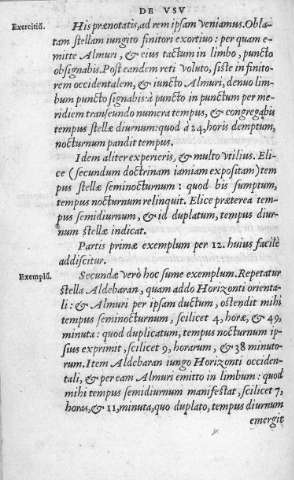 DE VSV
Exercitiũ. His prænotatis, ad rem ipsam veniamus. Obla-
tam stellam iungito finitori exortiuo: per quam e-
mitte Almuri, & eius tactum in limbo, puncto
obsignabis. Post eandem reti voluto, siste in finito-
rem occidentalem, & iuncto Almuri, denuo lim-
bum puncto signabis: à puncto in punctum per me-
ridiem transeundo numera tempus, & congregabis
tempus stellæ diurnum: quod à 24, horis demptum,
nocturnum pandit tempus.
Idem aliter experieris, & multo vtilius. Eli-
ce (secundum doctrinam iamiam expositam) tem
pus stellæ seminocturnum: quod bis sumptum,
tempus nocturnum relinquit. Elice præterea tem-
pus semidiurnum, & id duplatum, tempus diur-
num stellæ indicat.
Partis primæ exemplum per 12. huius facilè
addiscitur.
Exemplũ. Secundæ verò hoc sume exemplum. Repetatur
stella Aldebaran, quam addo Horizonti orienta-
li: & Almuri per ipsam ductum, ostendit mihi
tempus seminocturnum, scilicet 4, horæ, & 49,
minuta: quod duplicatum, tempus nocturnum ip-
sius exprimit, scilicet 9, horarum, & 38 minuto-
rum. Item Aldebaran iungo Horizonti occiden-
tali, & per eam Almuri emitto in limbum: quod
mihi tempus semidiurnum manifestat, scilicet 7,
horas, & 11, minuta, quo duplato, tempus diurnum
emergit